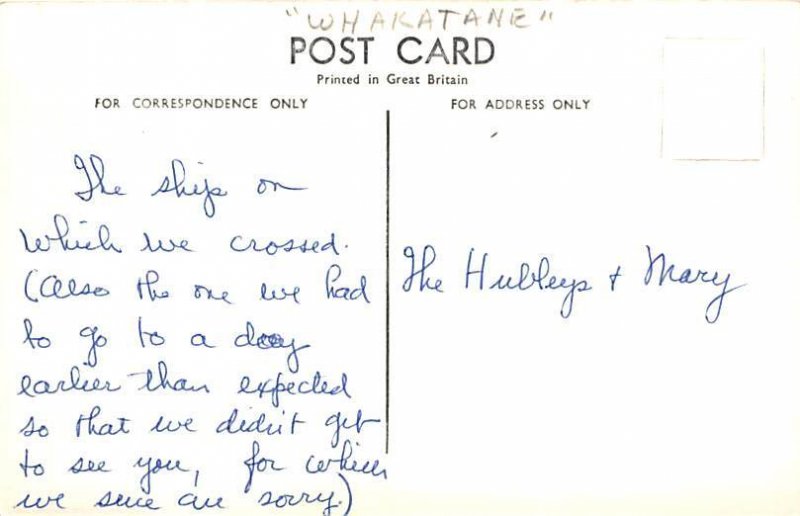 "WHAKATANE"
POST CARD
Printed in Great Britain
FOR CORRESPONDENCE ONLY
FOR ADDRESS ONLY
The ship on
which we crossed.
(Also the one we had
to go to a day
earlier than expected
so that we didn't get
to see you, for which
we sure are sorry.)
The Hubleys + Mary